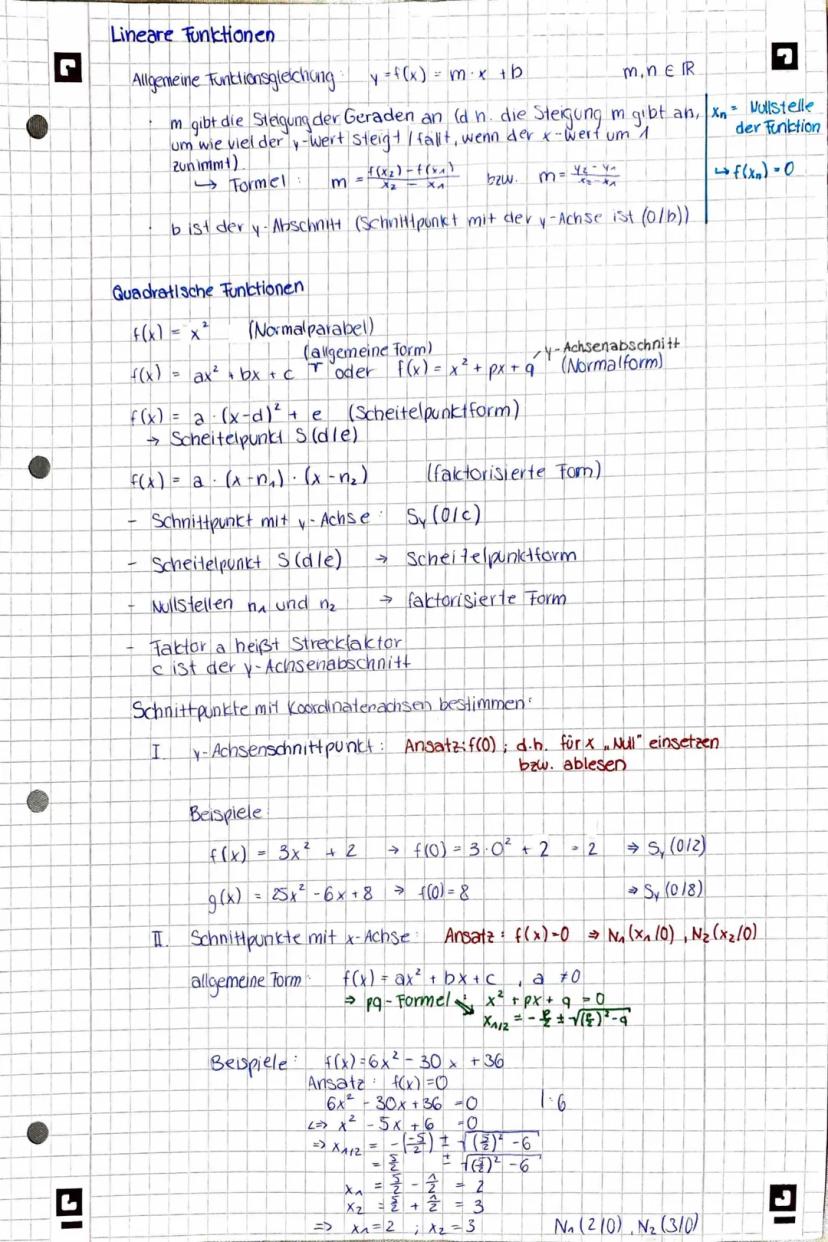 Lineare Funktionen
Allgemeine Funktionsgleichung: y = f(x) = m · x + b m,n ∈ ℝ
· m gibt die Steigung der Geraden an (d.h. die Steigung m gibt an,
um wie viel der y-Wert steigt / fällt, wenn der x-Wert um 1
zunimmt)
↳ Formel: m = (f(x₂) - f(x₁))/(x₂ - x₁) bzw. m = (y₂ - y₁)/(x₂ - x₁)
xₙ = Nullstelle
der Funktion
↳ f(xₙ) = 0
· b ist der y-Abschnitt (Schnittpunkt mit der y-Achse ist (0/b))
Quadratische Funktionen
f(x) = x² (Normalparabel)
(allgemeine Form) y-Achsenabschnitt
f(x) = ax² + bx + c oder f(x) = x² + px + q (Normalform)
f(x) = a · (x-d)² + e (Scheitelpunktform)
→ Scheitelpunkt S(d/e)
f(x) = a · (x-n₁) · (x-n₂) (faktorisierte Form)
- Schnittpunkt mit y-Achse: Sy (0/c)
- Scheitelpunkt S(d/e) → Scheitelpunktform
- Nullstellen n₁ und n₂ → faktorisierte Form
- Faktor a heißt Streckfaktor
c ist der y-Achsenabschnitt
Schnittpunkte mit Koordinatenachsen bestimmen:
I. y-Achsenschnittpunkt: Ansatz: f(0) ; d.h. für x „Null" einsetzen
bzw. ablesen
Beispiele:
f(x) = 3x² + 2 → f(0) = 3·0² + 2 = 2 ⇒ Sy (0/2)
g(x) = 25x² - 6x + 8 ⇒ f(0) = 8 ⇒ Sy (0/8)
II. Schnittpunkte mit x-Achse: Ansatz: f(x)=0 ⇒ N₁(x₁/0), N₂(x₂/0)
allgemeine Form: f(x) = ax² + bx + c , a ≠ 0
⇒ pq-Formel: x² + px + q = 0
x₁/₂ = -p/2 ± √((p/2)² - q)
Beispiele: f(x) = 6x² - 30x + 36
Ansatz: f(x) = 0
6x² - 30x + 36 = 0 |:6
<=> x² - 5x + 6 = 0
=> x₁/₂ = -(-5/2) ± √((5/2)² - 6)
= 5/2 ± √((5/2)² - 6)
x₁ = 5/2 - 1/2 = 2
x₂ = 5/2 + 1/2 = 3
=> x₁ = 2 ; x₂ = 3 N₁(2/0), N₂(3/0)